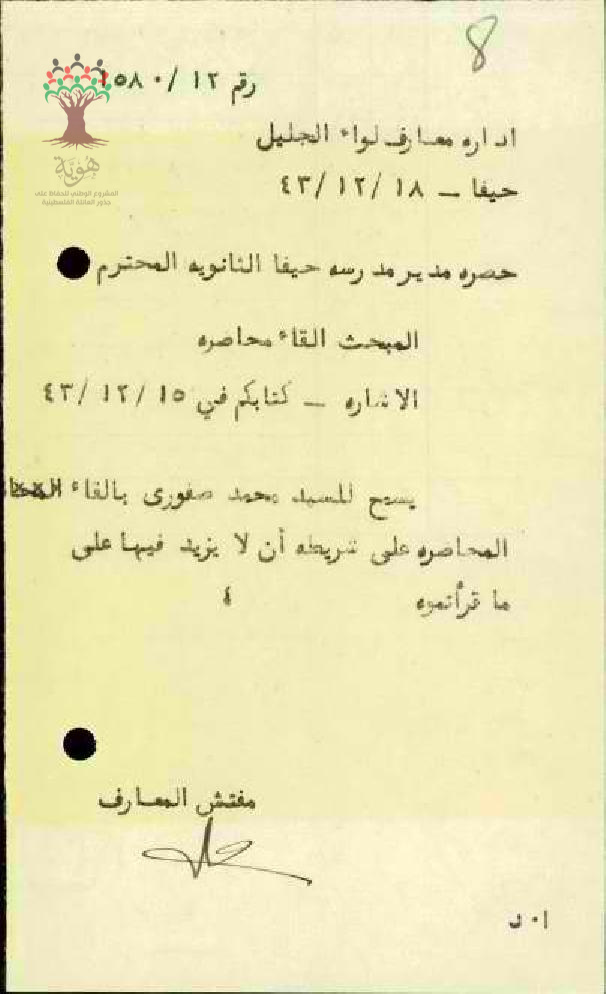 8
رقم ١٢ /١٥٨٠
هوية
المشروع الوطني للحفاظ على
جذور العائلة الفلسطينية
اداره معارف لواء الجليل
حيفا ــ ١٨ /١٢ /٤٣
حضره مدير مدرسه حيفا الثانويه المحترم
المبحث القاء محاضره
الاشاره ــ كتابكم في ١٥ /١٢ /٤٣
يسمح للسيد محمد صفوري بالقاء
المحاضره على شريطه أن لا يزيد فيها على
ما قرأتموه ٤
مفتش المعارف
ا٠ د